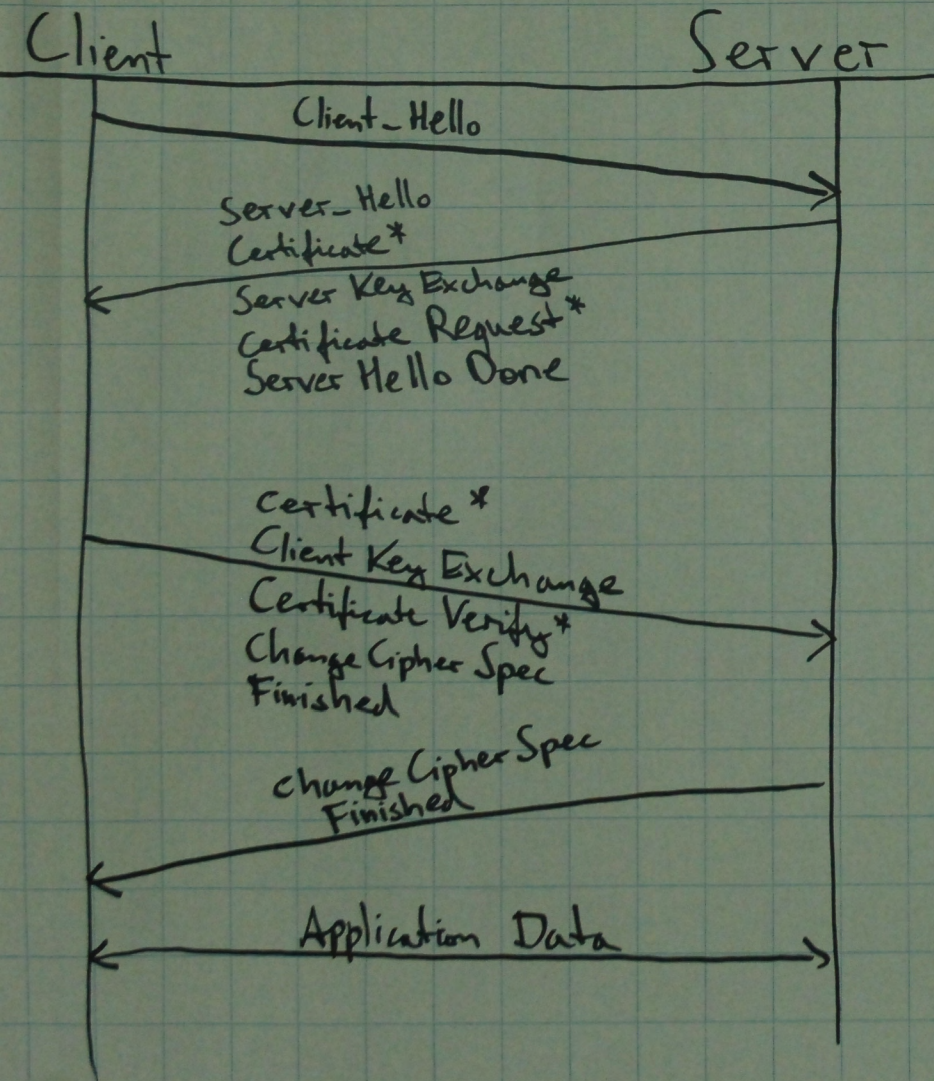 Client Server
Client_Hello
Server_Hello
Certificate*
Server Key Exchange
Certificate Request*
Server Hello Done
Certificate*
Client Key Exchange
Certificate Verify*
Change Cipher Spec
Finished
Change Cipher Spec
Finished
Application Data